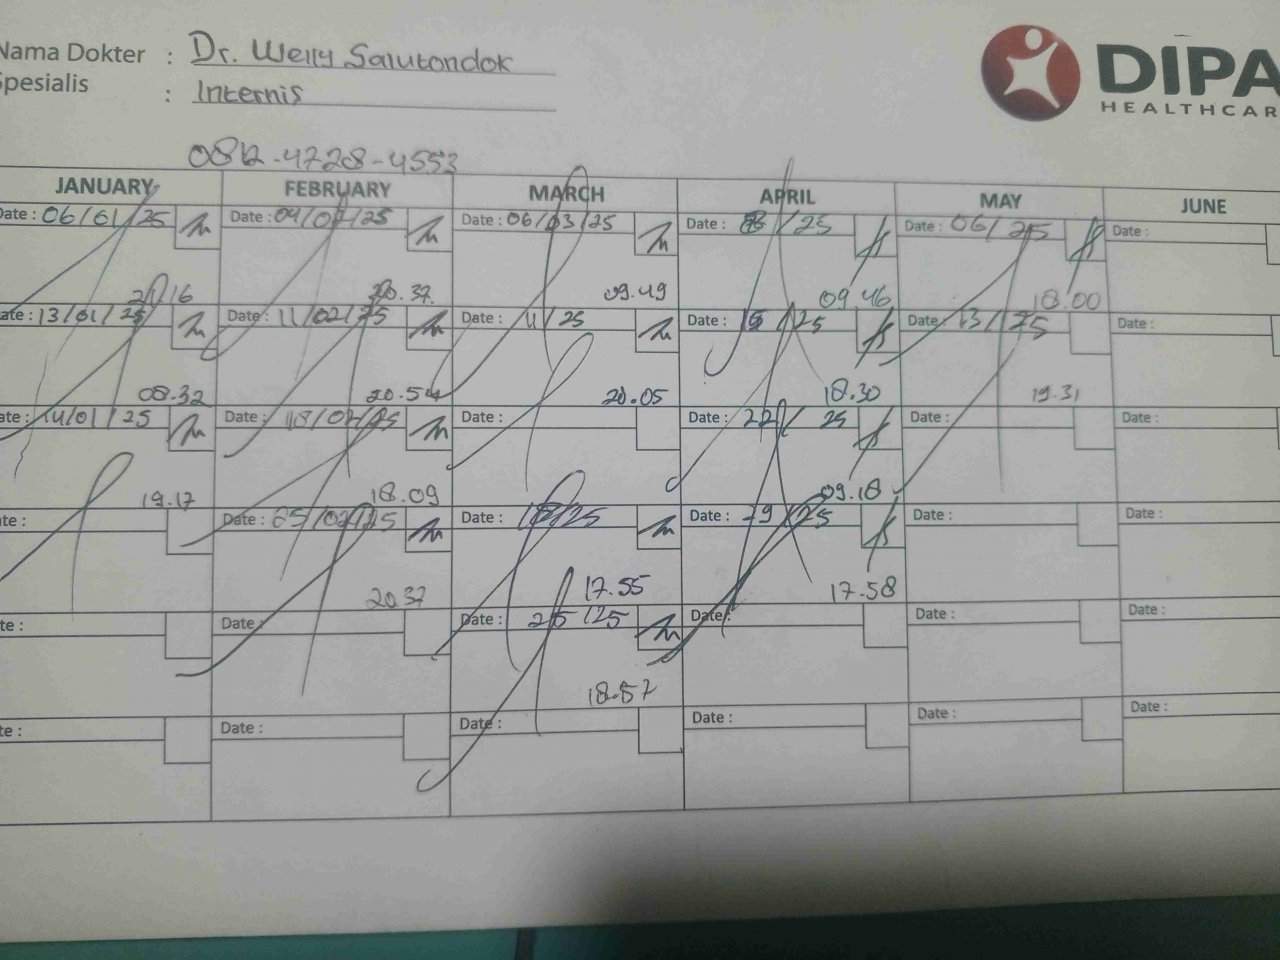 Nama Dokter : Dr. Welly Salutondok
Spesialis : Internis
DIPA
HEALTHCAR
0812-4728-4553
JANUARY FEBRUARY MARCH APRIL MAY JUNE
Date : 06/01/25 Date : 04/02/25 Date : 06/03/25 Date : /25 Date : 06/25 Date :
20.37 09.49 09.46 18.00
ate : 13/01/25 Date : 11/02/25 Date : 11/25 Date : 15/25 Date : 13/25 Date :
08.32 20.54 20.05 18.30 19.31
ate : 14/01/25 Date : 18/02/25 Date : Date : 22/25 Date : Date :
19.17 18.09 09.18
te : Date : 25/02/25 Date : 18/25 Date : 29/25 Date : Date :
20.37 17.55 17.58
te : Date : Date : 25/25 Date : Date : Date :
18.57
te : Date : Date : Date : Date : Date :